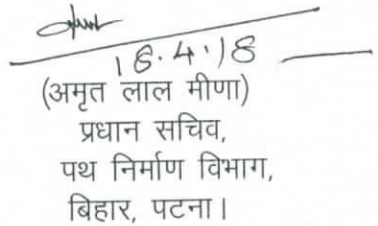 18.4.18
(अमृत लाल मीणा)
प्रधान सचिव,
पथ निर्माण विभाग,
बिहार, पटना।